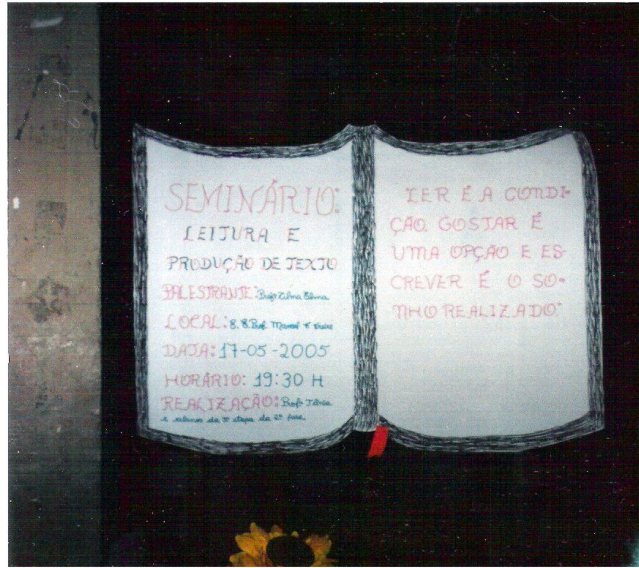 SEMINÁRIO:
LEITURA E
PRODUÇÃO DE TEXTO
PALESTRANTE: Profª Zilma
LOCAL:
DATA: 17-05-2005
HORÁRIO: 19:30 H
REALIZAÇÃO: Profª
e alunos da etapa da fase
LER É A CONDI-
ÇÃO, GOSTAR É
UMA OPÇÃO E ES-
CREVER É O SO-
NHO REALIZADO."